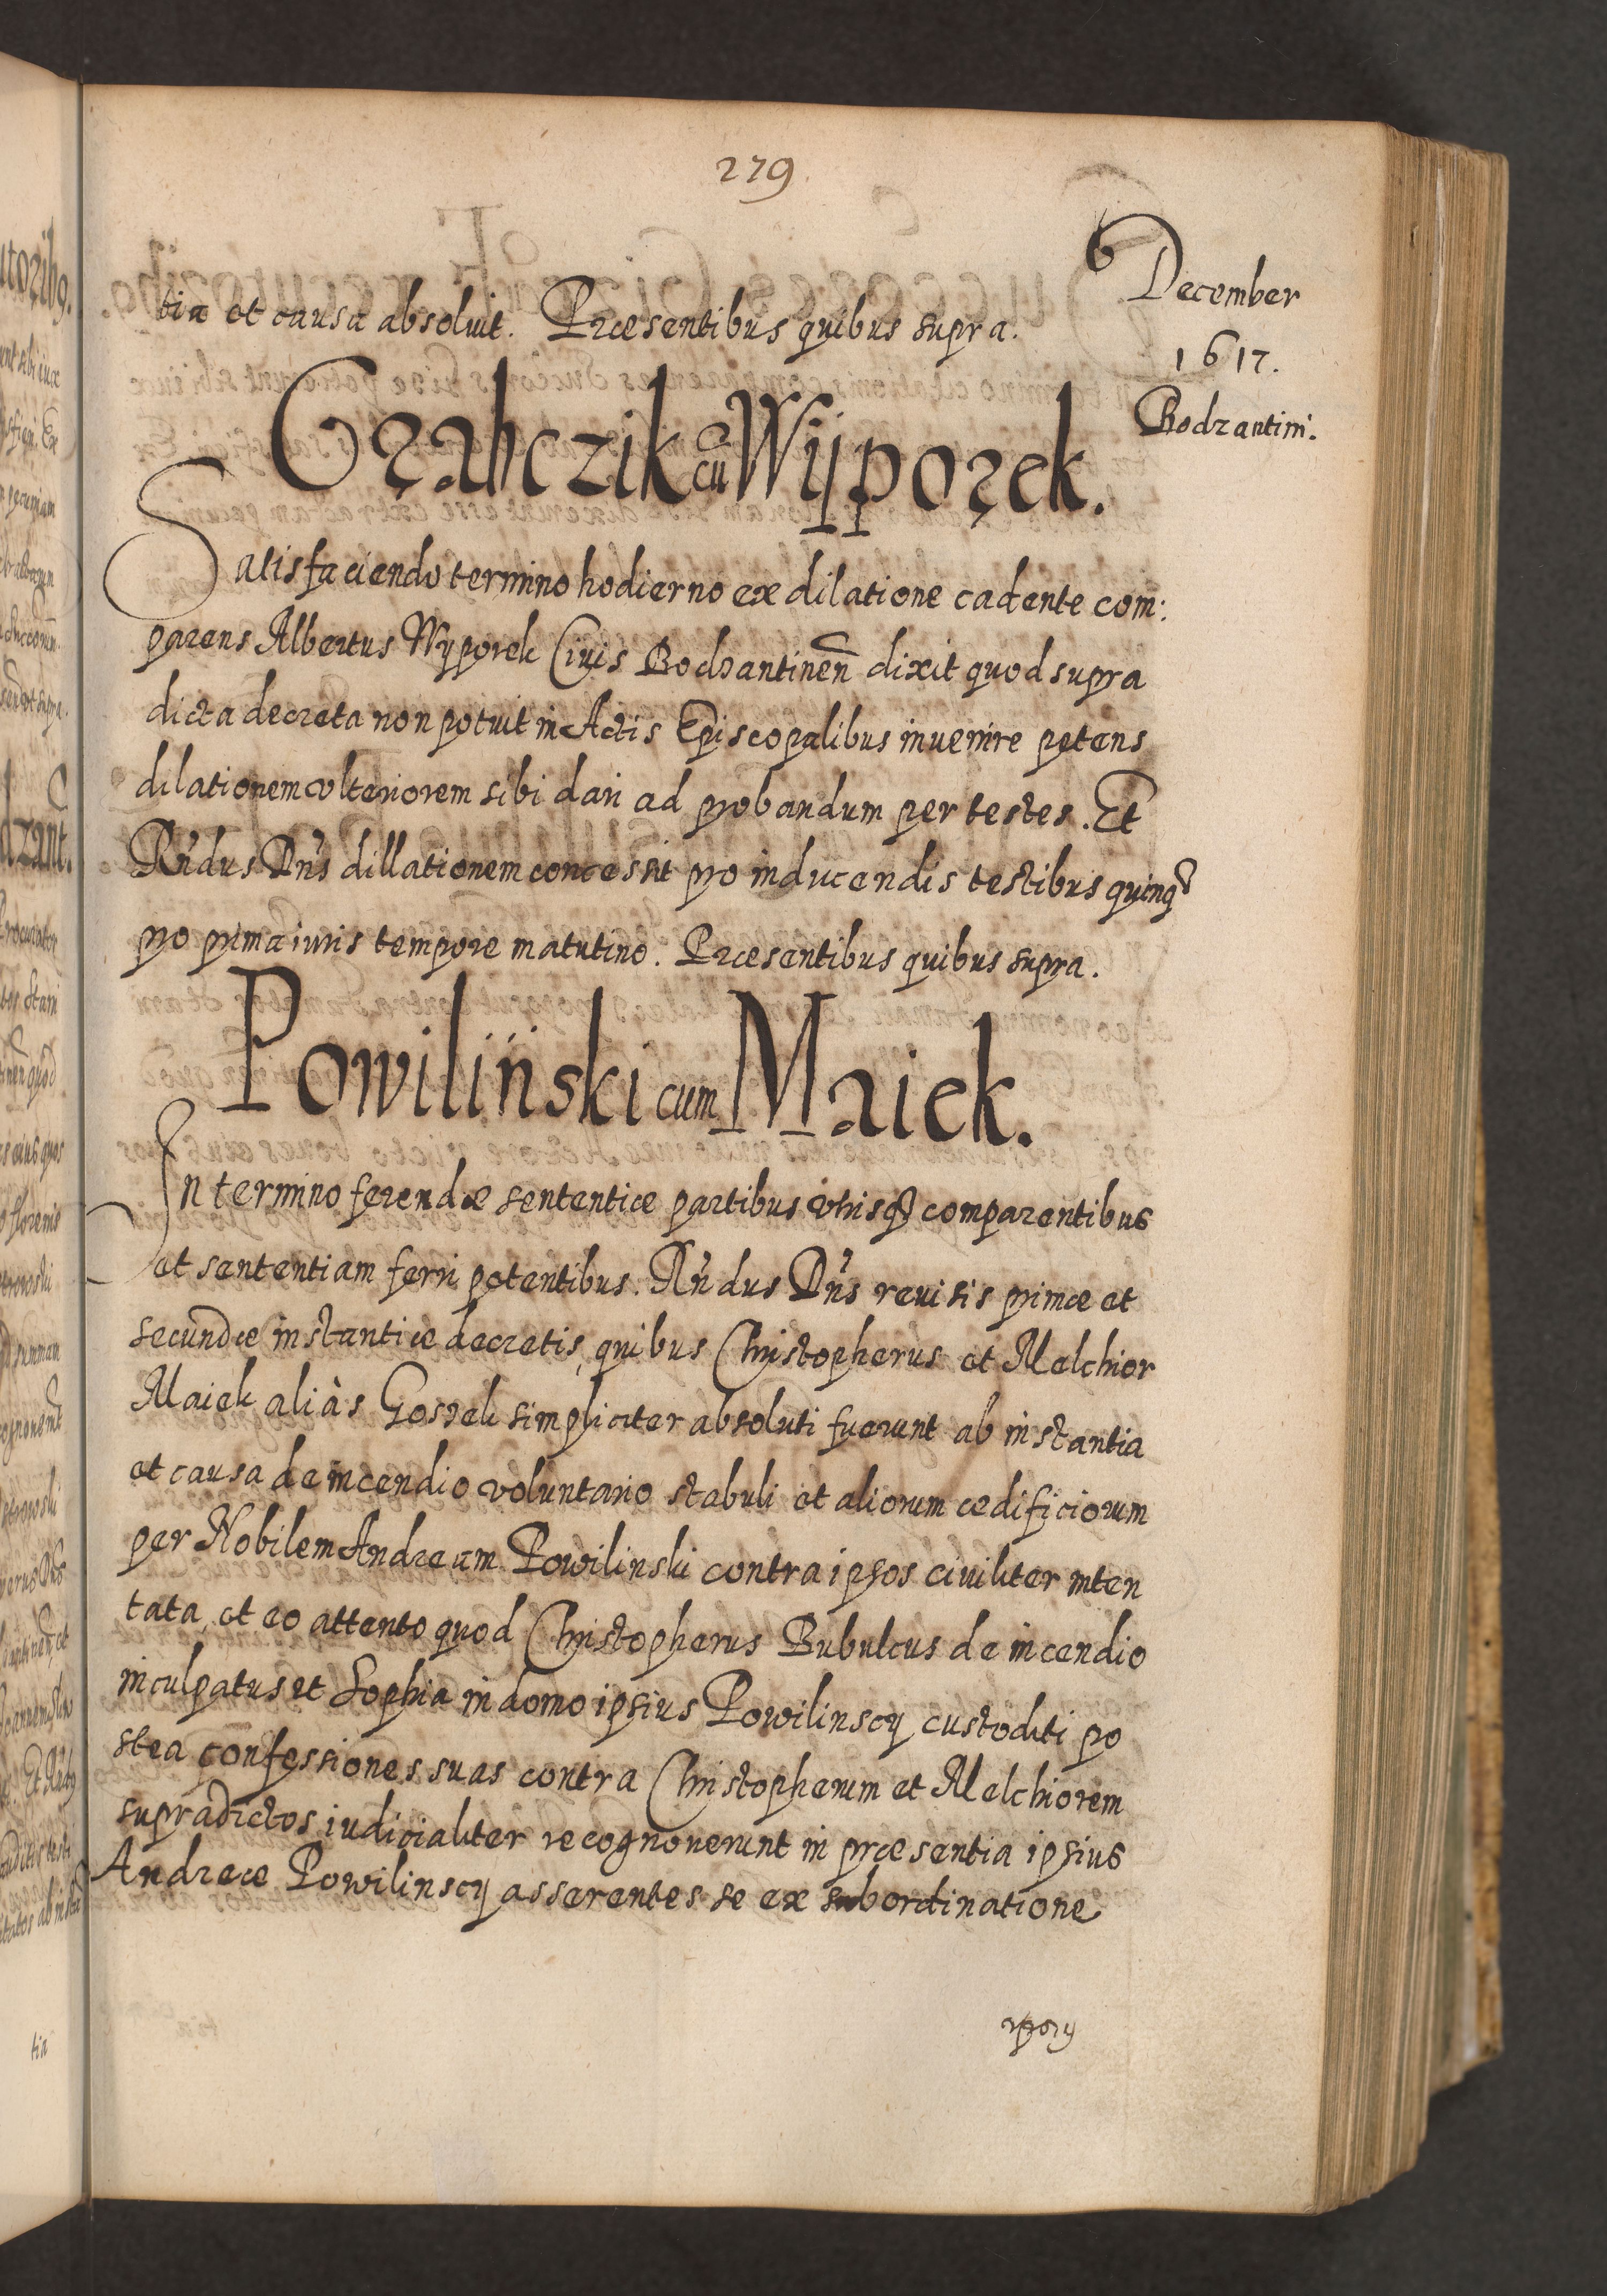 279
December
1617.
Bodzantini.
tia et causa absoluit. Præsentibus quibus supra.
Grabczik cũ Wÿporek.
Satisfaciendo termino hodierno ex dilatione cadente com:
parens Albertus Wyporek Ciuis Bodzantinen̄ dixit quod supra
dicta decreta non potuit in Actis Episcopalibus inuenire petens
dilationem vlteriorem sibi dari ad probandum per testes. Et
Rn̄dus Dn̄s dillationem concessit pro inducendis testibus quinq3
pro prima iuris tempore matutino. Præsentibus quibus supra.
Powiliński cum Maiek.
In termino ferendæ sententiæ partibus vtrisq3 comparentibus
et sententiam ferri petentibus. Rn̄dus Dn̄s reuisis primæ et
secundæ instantiæ decretis, quibus Christopherus et Melchior
Maiek aliàs Gosrek simpliciter absoluti fuerunt ab instantia
et causa de incendio voluntario stabuli et aliorum ædificiorum
per Nobilem Andream Powilinski contra ipsos ciuiliter inten
tata, et eo attento quod Christopherus Bubulcus de incendio
inculpatus et Sophia in domo ipsius Powilinscy custoditi po
stea confessiones suas contra Christopherum et Melchiorem
supradictos iudicialiter recognouerunt in præsentia ipsius
Andreæ Powilinscy asserentes se ex subordinatione